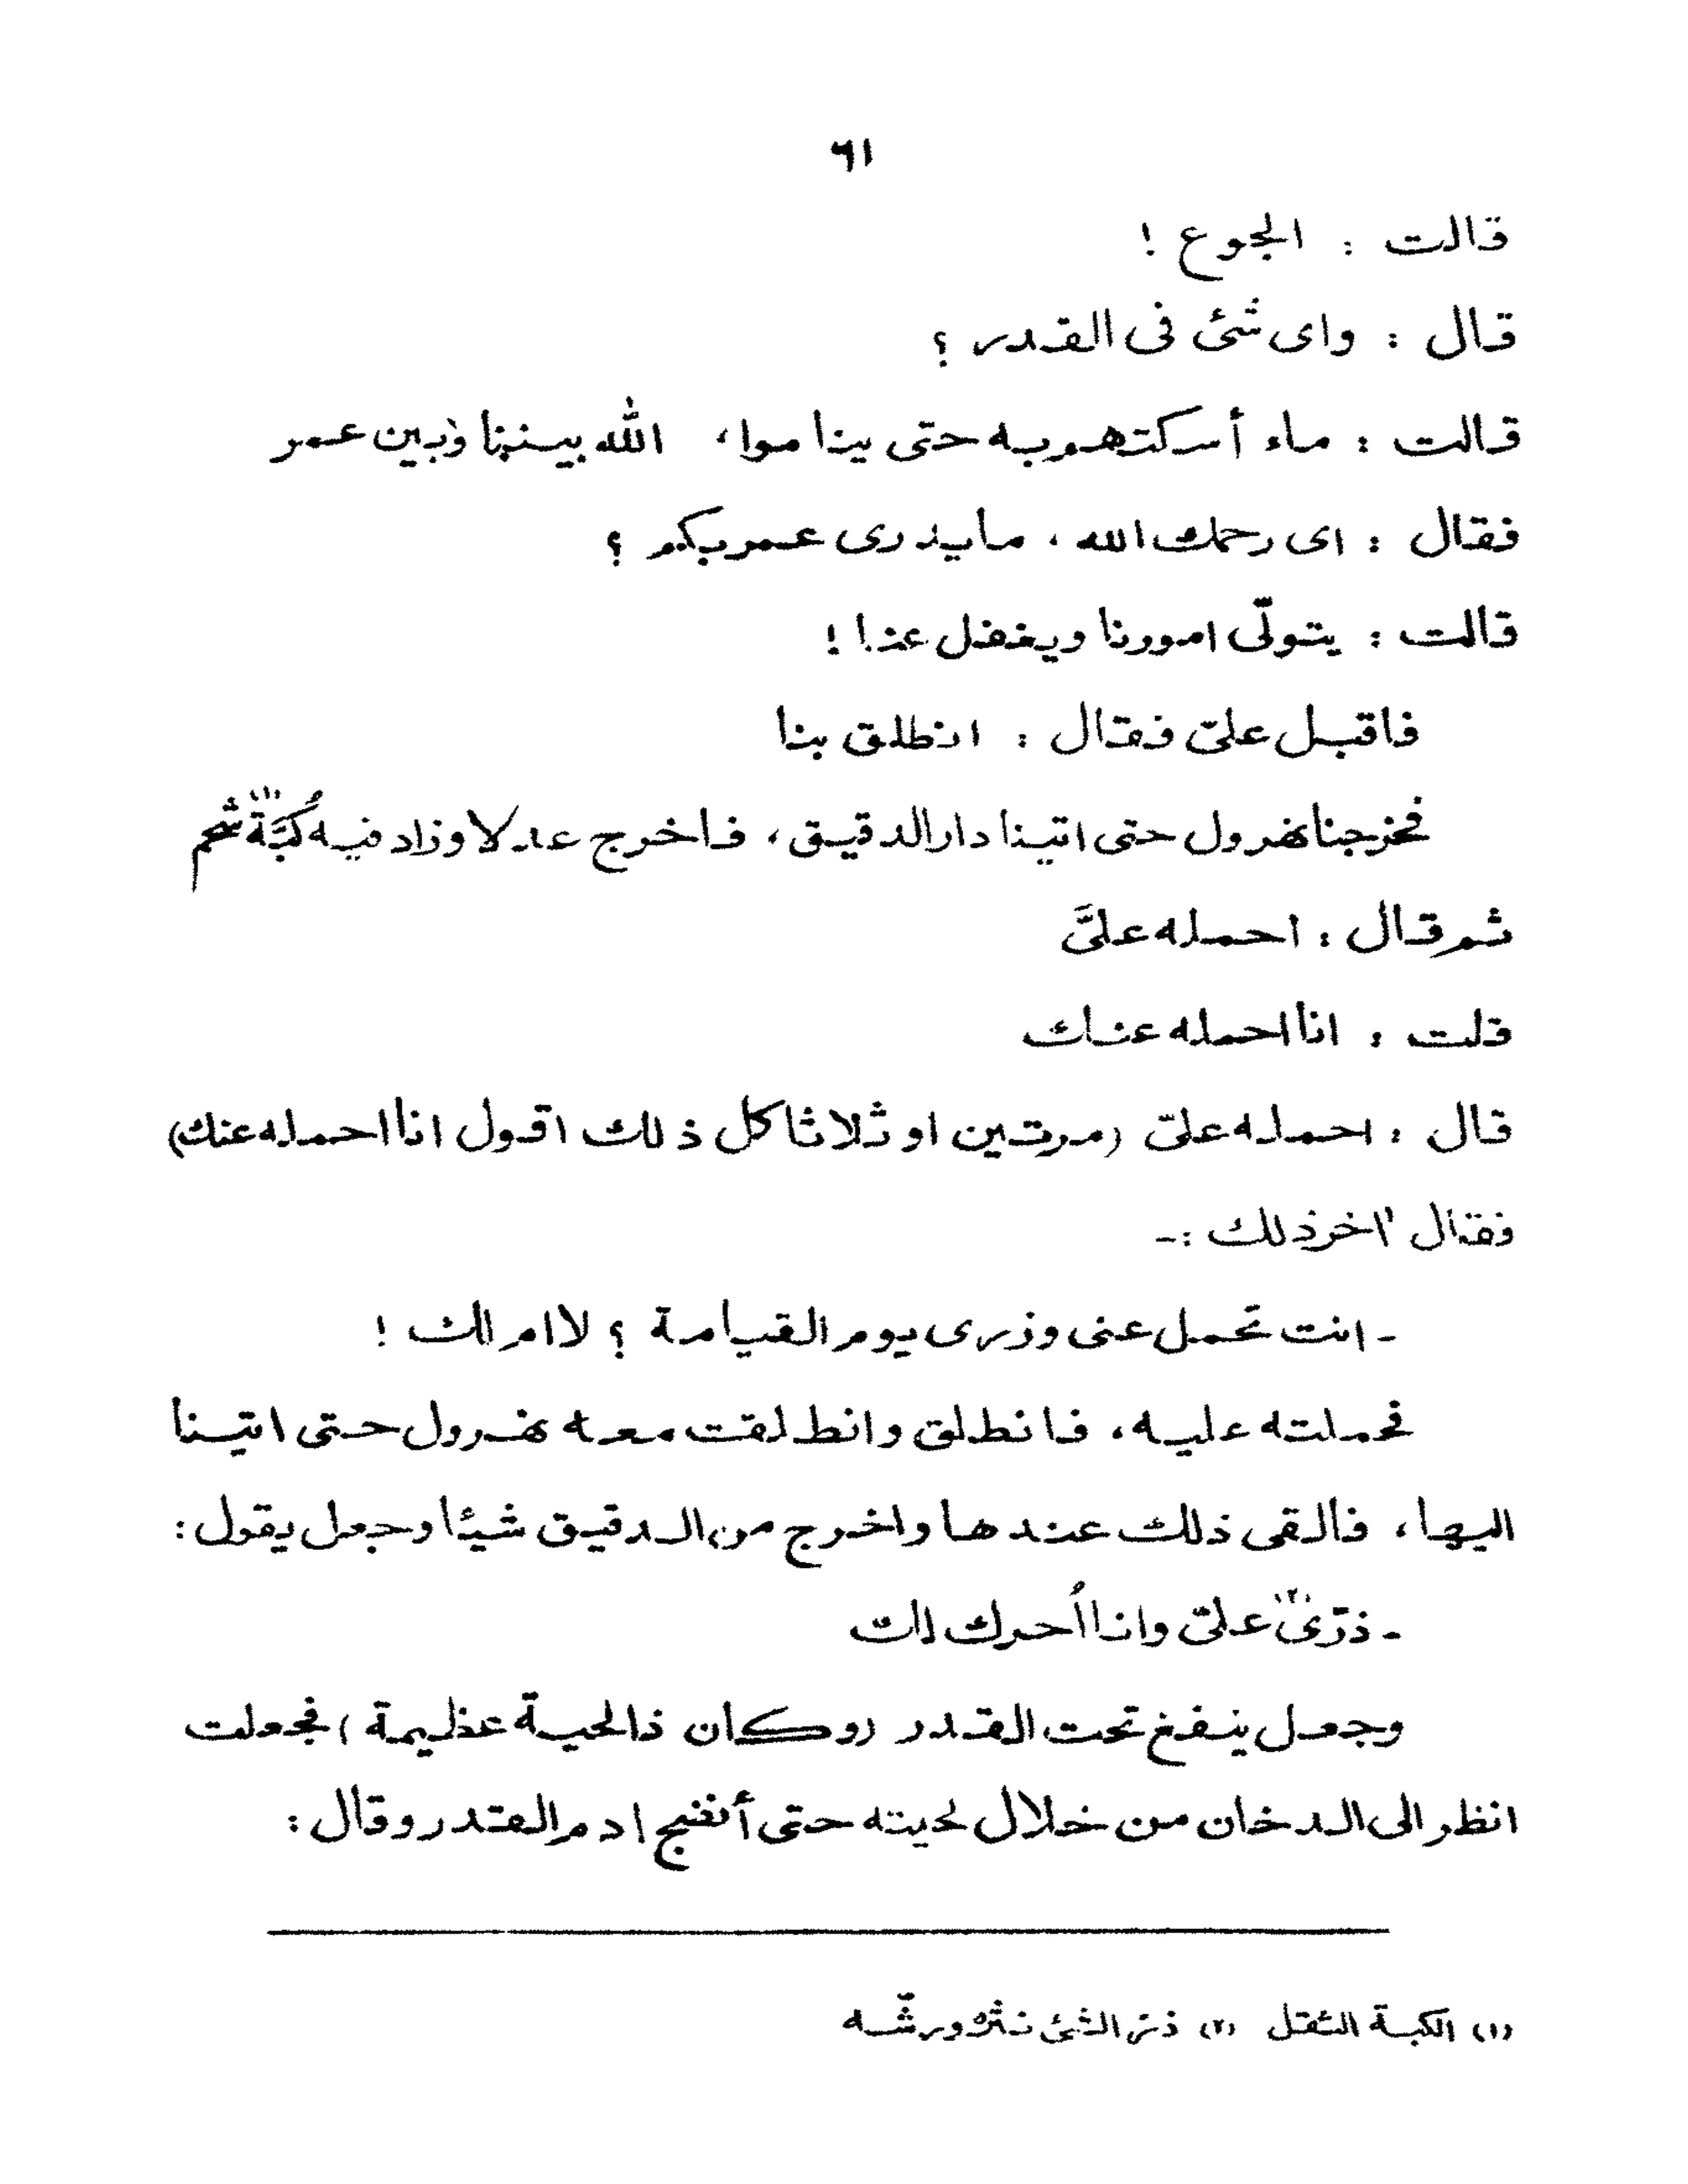 ٦١
قالت : الجوع !
قال : واى شئ فى القدر ؟
قالت : ماء أسكتهم به حتى يناموا، الله بيننا وبين عمر
فقال : اى رحمك الله ، ما يدرى عمر بكم ؟
قالت : يتولّى امورنا ويغفل عنا !
فاقبل علىّ فقال : انطلق بنا
فخرجنا نهرول حتى اتينا دار الدقيق، فاخرج عدلا وزاد فيه كُبَّةَ(١) شحم
ثم قال : احمله علىَّ
قلت : انا احمله عنك
قال : احمله علىّ (مرتين او ثلاثا كل ذلك اقول انا احمله عنك)
فقال اخر ذلك :-
- انت تحمل عنى وزرى يوم القيامة ؟ لا ام لك !
فحملته عليه، فانطلق وانطلقت معه نهرول حتى اتينا
اليها، فالقى ذلك عندها واخرج من الدقيق شيئا وجعل يقول :
- ذرّى(٢) علىّ وانا أُحرك لك
وجعل ينفخ تحت القدر (وكان ذا لحية عظيمة) فجعلت
انظر الى الدخان من خلال لحيته حتى أنضج ادم القدر وقال :
(١) الكبة الثقل (٢) ذر الشئ نثره ورشّه